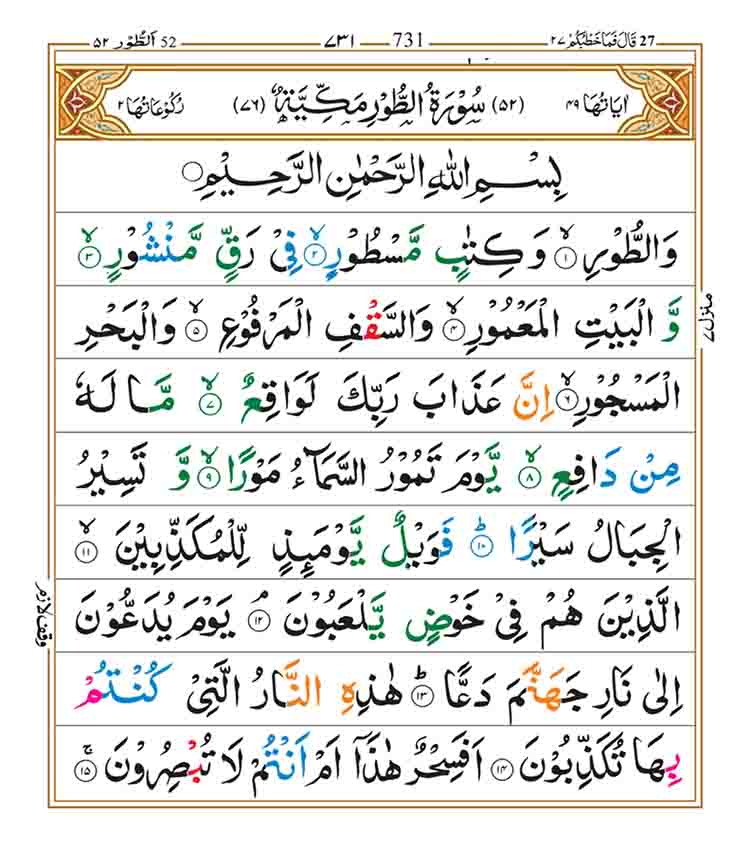 27 قَالَ فَمَا خَطْبُكُمْ ٢٧ 731 ٧٣١ 52 اَلطُّوْر ٥٢
اٰيَاتُهَا ٤٩ (٥٢) سُوْرَةُ الطُّوْرِ مَكِّيَّةٌ (٧٦) رُكُوْعَاتُهَا ٢
بِسْمِ اللّٰهِ الرَّحْمٰنِ الرَّحِيْمِ
وَالطُّوْرِۙ ١ وَكِتٰبٍ مَّسْطُوْرٍۙ ٢ فِيْ رَقٍّ مَّنْشُوْرٍۙ ٣
وَّ الْبَيْتِ الْمَعْمُوْرِۙ ٤ وَالسَّقْفِ الْمَرْفُوْعِۙ ٥ وَالْبَحْرِ
الْمَسْجُوْرِۙ ٦ اِنَّ عَذَابَ رَبِّكَ لَوَاقِعٌۙ ٧ مَّا لَهٗ
مِنْ دَافِعٍۙ ٨ يَّوْمَ تَمُوْرُ السَّمَآءُ مَوْرًاۙ ٩ وَّ تَسِيْرُ
الْجِبَالُ سَيْرًاؕ ١٠ فَوَيْلٌ يَّوْمَئِذٍ لِّلْمُكَذِّبِيْنَۙ ١١
الَّذِيْنَ هُمْ فِيْ خَوْضٍ يَّلْعَبُوْنَۘ ١٢ يَوْمَ يُدَعُّوْنَ
اِلٰى نَارِ جَهَنَّمَ دَعًّاؕ ١٣ هٰذِهِ النَّارُ الَّتِيْ كُنْتُمْ
بِهَا تُكَذِّبُوْنَ ١٤ اَفَسِحْرٌ هٰذَآ اَمْ اَنْتُمْ لَا تُبْصِرُوْنَۚ ١٥
منزل ٧
وقف لازم